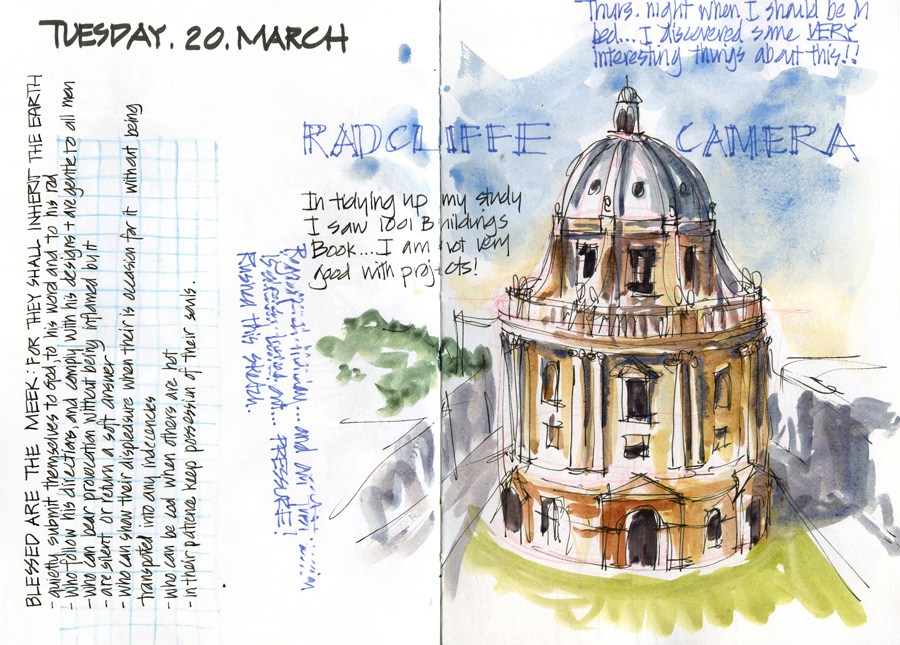 TUESDAY. 20. MARCH
Thurs. night when I should be in
bed... I discovered some VERY
interesting things about this!!
RADCLIFFE CAMERA
In tidying up my study
I saw 1001 Buildings
Book.... I am not very
good with projects!
BLESSED ARE THE MEEK: FOR THEY SHALL INHERIT THE EARTH
- quietly submit themselves to God, to his word and to his rod
- who follow his directions, and comply with his designs + are gentle to all men
- who can bear provocation without being inflamed by it
- are silent or return a soft answer
- who can show their displeasure when their is occasion for it without being
transported into any indecencies
- who can be cool when others are hot
- in their patience keep possession of their souls.
and am
PRESSURE!
Rushed this sketch.